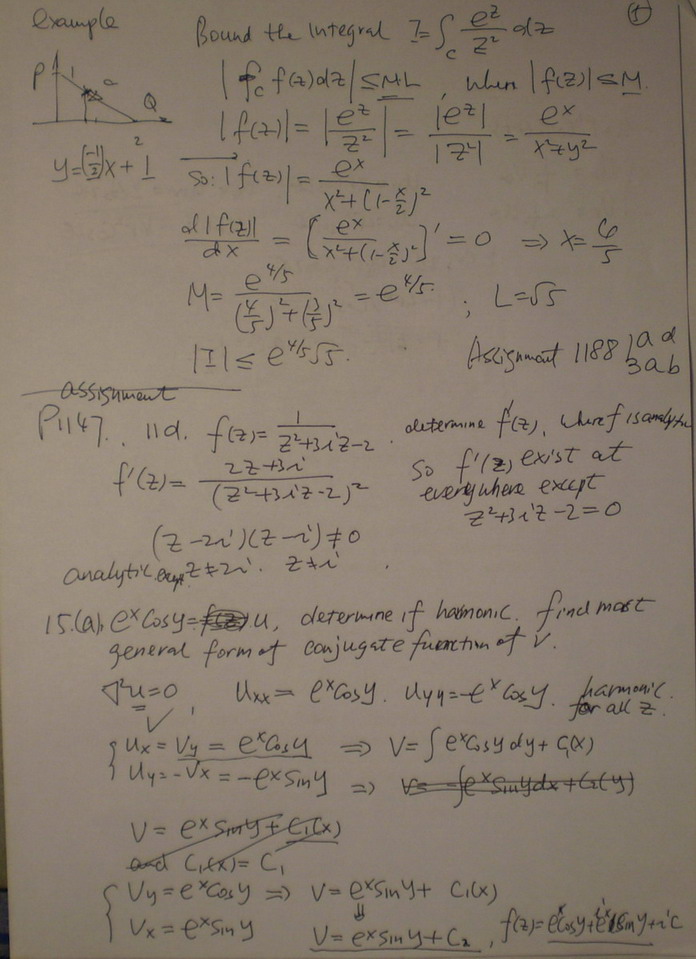 example
①
Bound the Integral I=∫_C e^z/z² dz
P 1 Q 2
|∫_C f(z)dz| ≤ ML, where |f(z)| ≤ M.
|f(z)| = |e^z/z²| = |e^z|/|z²| = e^x/(x²+y²)
y=(-1/2)x+1
so: |f(z)| = e^x/(x²+(1-x/2)²)
d|f(z)|/dx = (e^x/(x²+(1-x/2)²))' = 0 ⇒ x=
M= e^{4/5}/((4/5)²+(3/5)²) = e^{4/5}. ; L=√5
|I| ≤ e^{4/5}√5.
Assignment 1188 1 a d
3 a b
assignment
P1147. 11d. f(z)= 1/(z²+3iz-2). determine f'(z), where f is analytic
f'(z)= (2z+3i)/(z²+3iz-2)²
so f'(z) exist at
everywhere except
z²+3iz-2=0
(z-2i)(z-i)≠0
analytic except z≠2i. z≠i.
15.(a). e^x cosy= u, determine if harmonic. find most
general form of conjugate function of v.
∇²u=0, u_xx= e^x cosy. u_yy=-e^x cosy. harmonic.
for all z.
{ u_x = v_y = e^x cosy ⇒ v=∫e^x cosy dy + C₁(x)
u_y=-v_x = -e^x siny ⇒ v= -∫e^x siny dx + C₂(y)
v= e^x siny + C₁(x)
and C₁(x)= C₁
{ v_y = e^x cosy ⇒ v= e^x siny + C₁(x)
⇓
v_x = e^x siny v= e^x siny + C₂, f(z)= e^x cosy + i e^x siny + ic